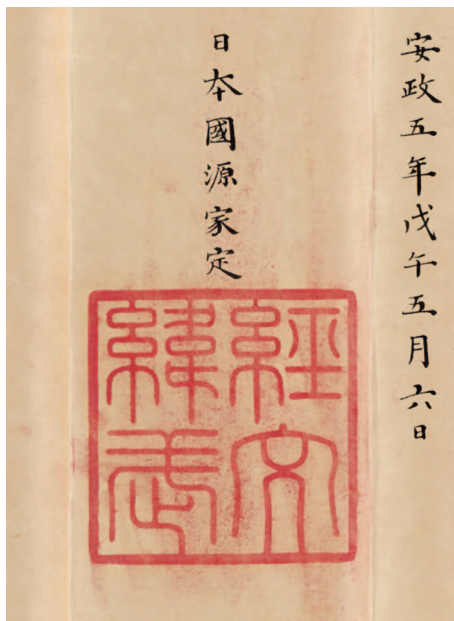 安政五年戊午五月六日
日本國源家定
經文
緯武